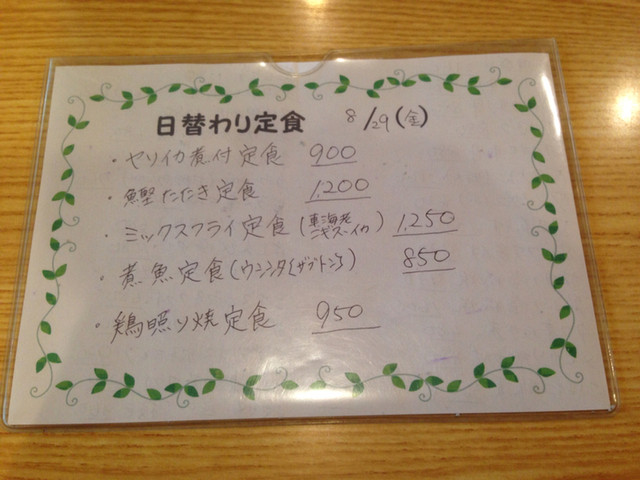 日替わり定食 8/29(金)
・ヤリイカ煮付定食 900
・鰹たたき定食 1,200
・ミックスフライ定食(車海老 ニギス・イカ) 1,250
・煮魚定食(ウシンタ) 850
・鶏照り焼定食 950